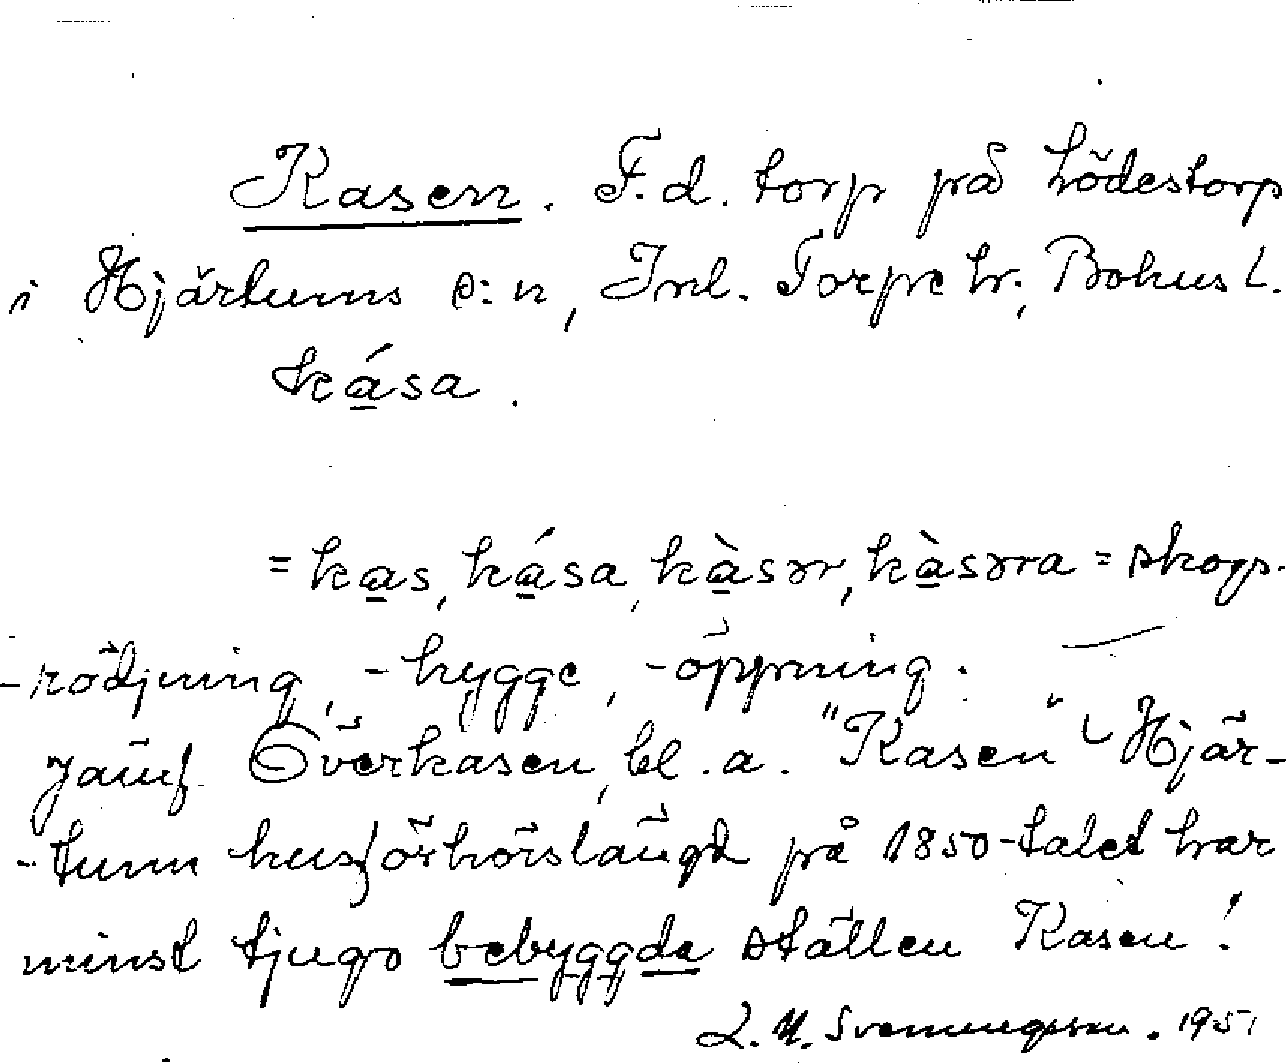 Kasen. F.d. torp på Lödestorp
i Hjärtums s:n, Inl. Torpe hr., Bohusl.
kása.
= kas, kása, kàsər, kàsərra = skogs-
-rödjning, -hygge, -öppning.
Jämf. Överkasen, bl.a. "Kasen" Hjär-
-tum husförhörslängd på 1850-talet har
minst tjugo bebyggda ställen Kasen!
Svenningsson. 1951